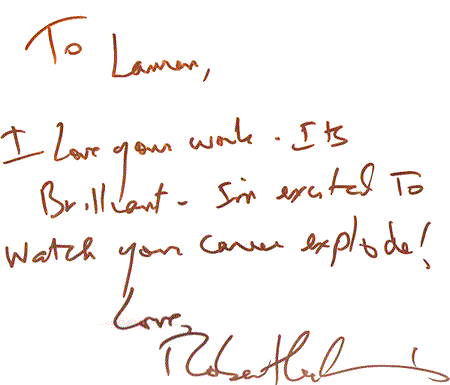 To Lauren,
I Love your work. Its
Brilliant. I'm excited To
watch your career explode!
Love,
Robert